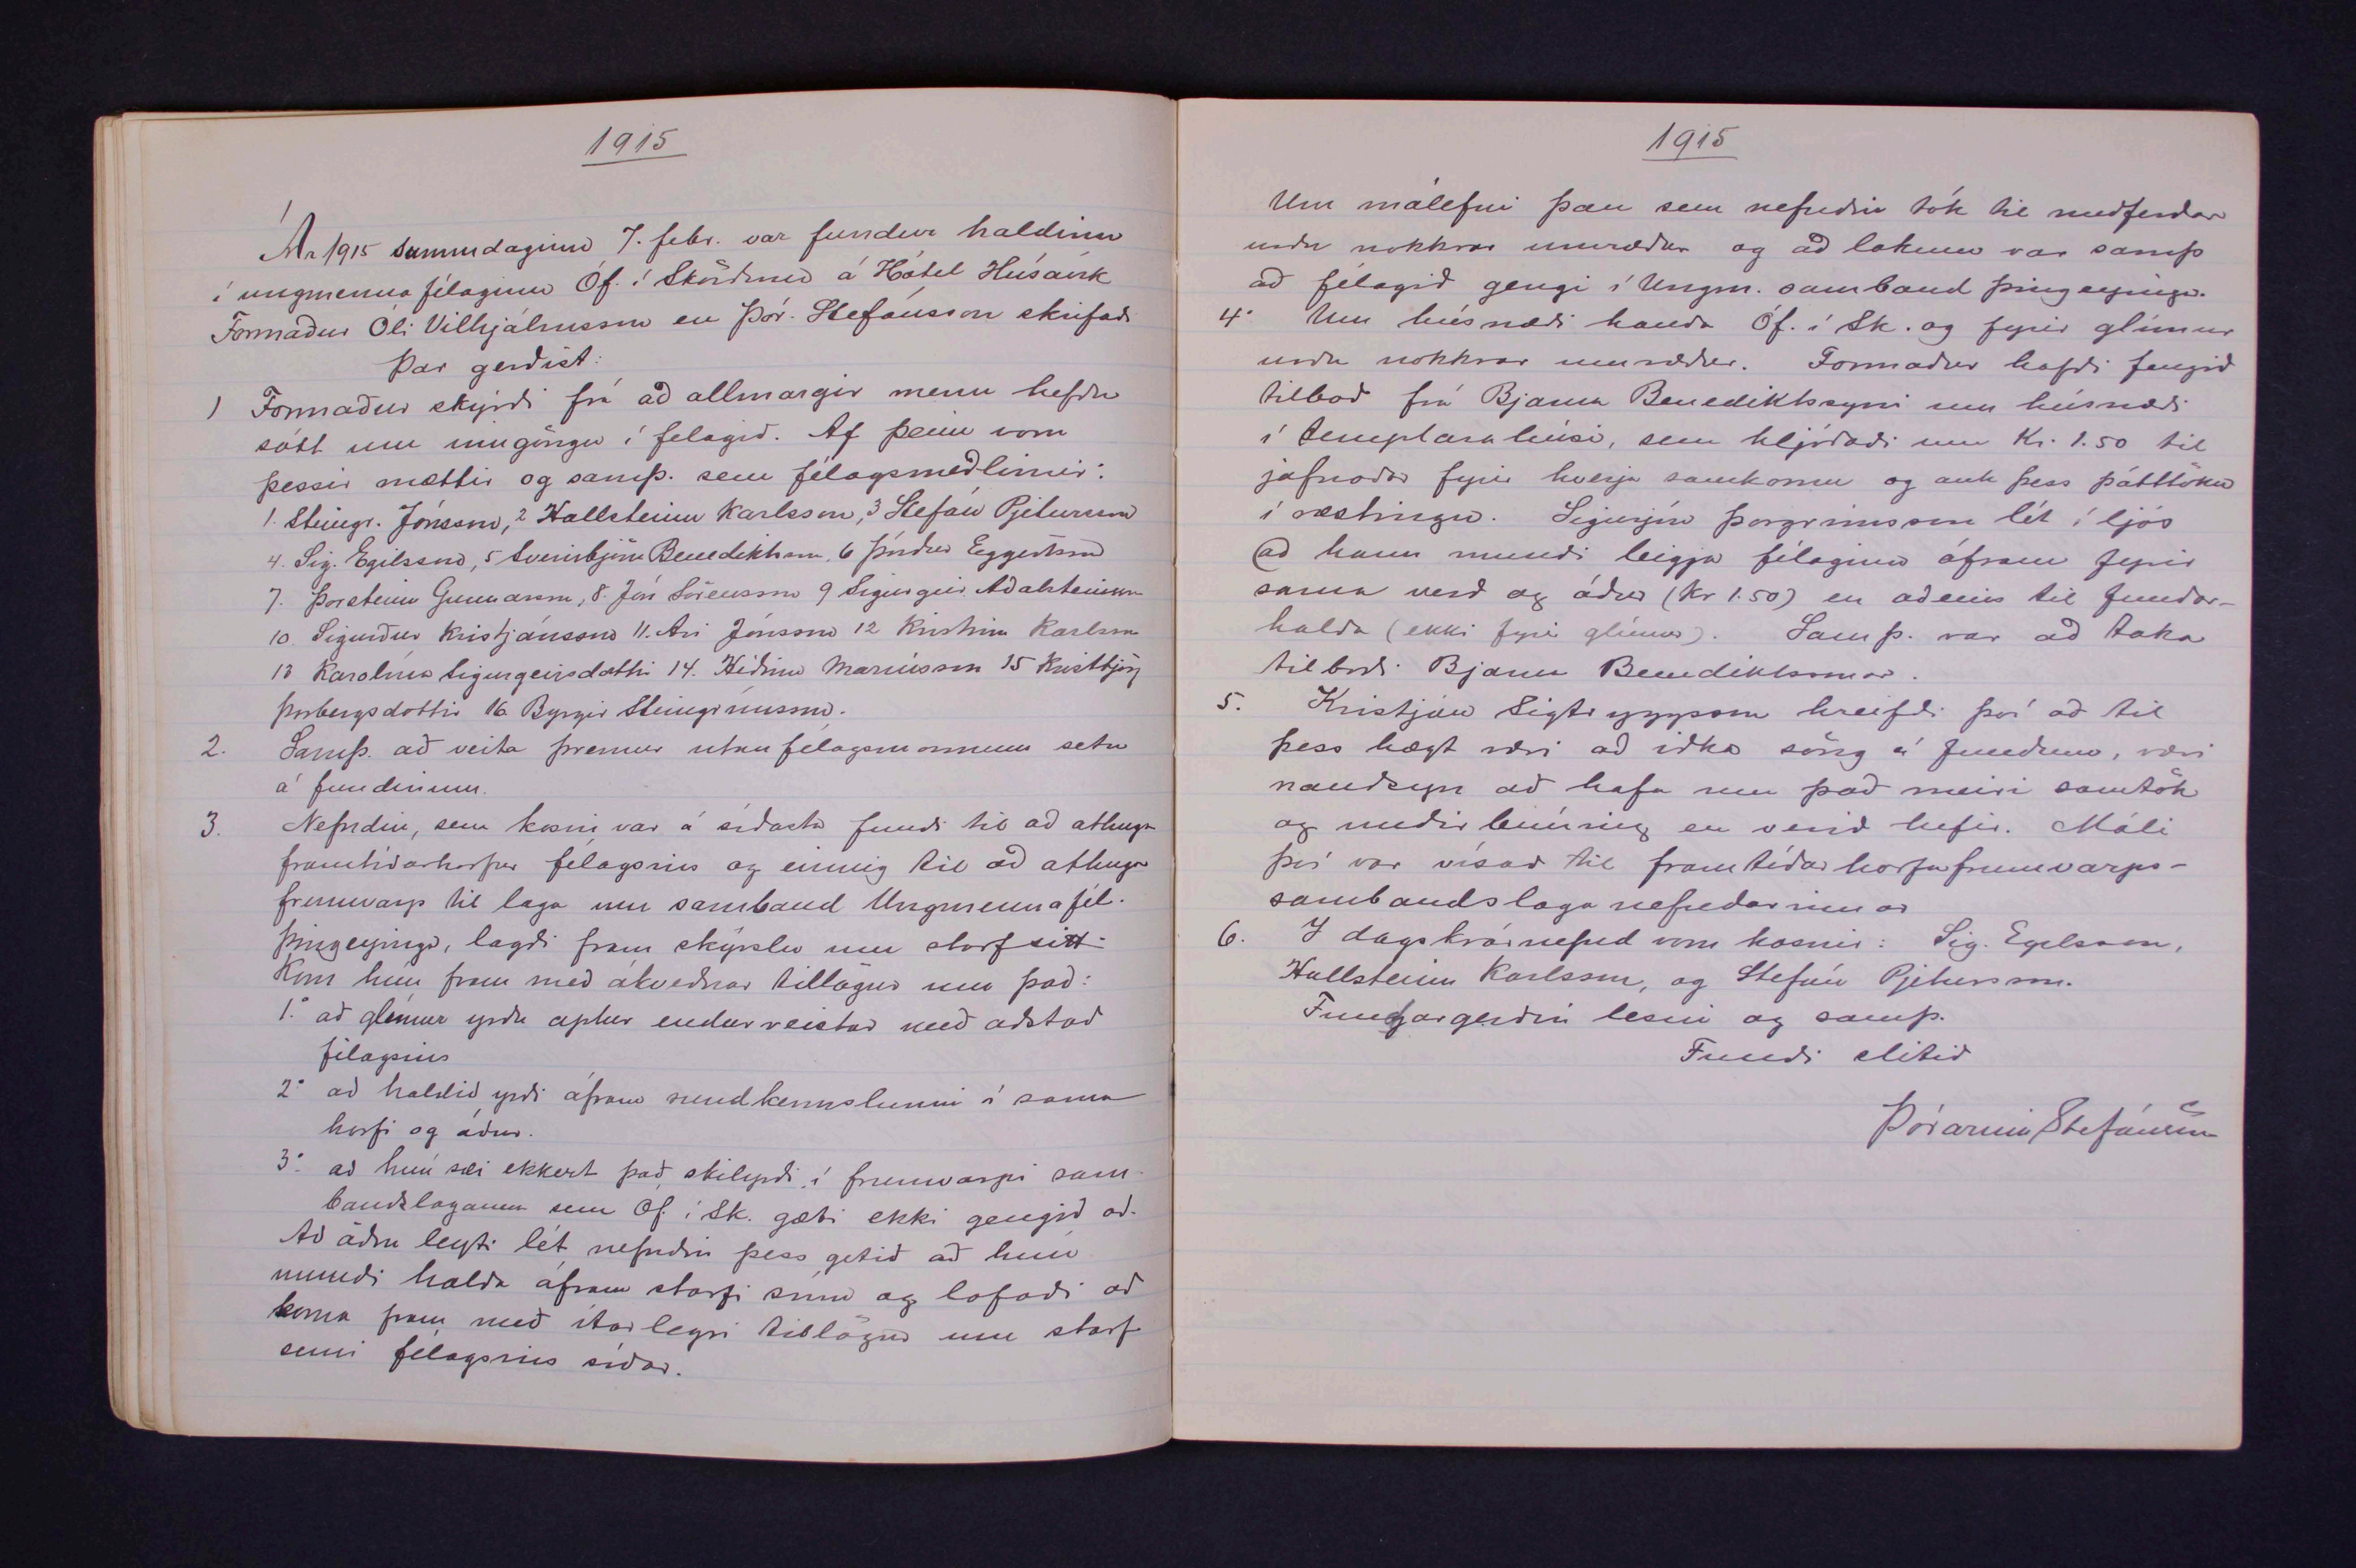 1915
Ár 1915 sunnudaginn 7. febr. var fundur haldinn
í ungmennafélaginu Óf. í Skörðum á Hótel Húsavík
Formaður Óli Vilhjálmsson en Þór. Stefánsson skrifaði
Þar gerðist:
1 Formaður skýrði frá að allmargir menn hefðu
sótt um inngöngu í felagið. Af þeim vom
þessir mættir og samþ. sem félagsmeðlimir:
1. Steingr. Jónsson, 2 Hallsteinn Karlsson, 3 Stefán Pjetursson
4. Sig. Egilsson, 5 Sveinbjörn Benediktsson, 6 Þórður Eggertsson
7. Þorsteinn Gunnarsson, 8. Jón Sörensson 9 Sigurgeir Aðalsteinsson
10 Sigurður Kristjánsson 11. Ari Jónsson 12 Kristinn Karlsson
13 Karolína Sigurgeirsdottir 14. Héðinn Maríusson 15 Kristbjörg
Þorbergsdottir 16 Byrgir Steingrímsson.
2. Samþ. að veita þremur utanfélagsmönnum setu
á fundinum.
3. Nefndin, sem kosin var á síðasta fundi til að athuga
framtíðarhorfur félagsins og einnig til að athuga
frumvarp til laga um samband Ungmennafél.
Þingeyinga, lagði fram skýrslu um starf sitt.
Kom hún fram með ákveðnar tillögur um það:
1.° að glímur yrðu aptur endurreistar með aðstoð
félagsins
2° að haldið yrði áfram sundkennslunni í sama
horfi og áður.
3° að hún sæi ekkert það skilyrði í frumvarpi sam-
bandslaganna sem Óf. í Sk. gæti ekki gengið að.
Að öðru leyti lét nefndin þess getið að hún
mundi halda áfram starfi sínu og lofaði að
koma fram með ítarlegri tillögur um starf
semi félagsins síðar.
1915
Um málefni þau sem nefndin tók til meðferðar
urðu nokkrar umræður og að lokum var samþ
að félagið gengi í Ungm. samband Þingeyinga.
4° Um húsnæði handa Óf. í Sk. og fyrir glímur
urðu nokkrar umræður. Formaður hafði fengið
tilboð frá Bjarna Benediktssyni um húsnæði
í templarahúsi, sem hljóðaði um Kr. 1.50 til
jafnaðar fyrir hverja samkomu og auk þess þátttöku
í ræstingu. Sigurjón Þorgrímsson lét í ljós
að hann mundi leigja félaginu áfram fyrir
sama verð og áður (Kr 1.50) en aðeins til fundar-
halda (ekki fyrir glímur). Samþ. var að taka
tilboði Bjarna Benediktssonar.
5. Kristján Sigtryggsson hreifði því að til
þess hægt væri að iðka söng á fundum, væri
nauðsyn að hafa um það meiri samtök
og undirbúning en verið hefir. Máli
því var vísað til framtíðarhorfufrumvarps-
sambandslaganefndarinnar
6. Í dagskrárnefnd vom kosnir: Sig. Egilsson,
Hallsteinn Karlsson, og Stefán Pjetursson.
Fundargerðin lesin og samþ.
Fundi slitið
Þórarinn Stefánsson